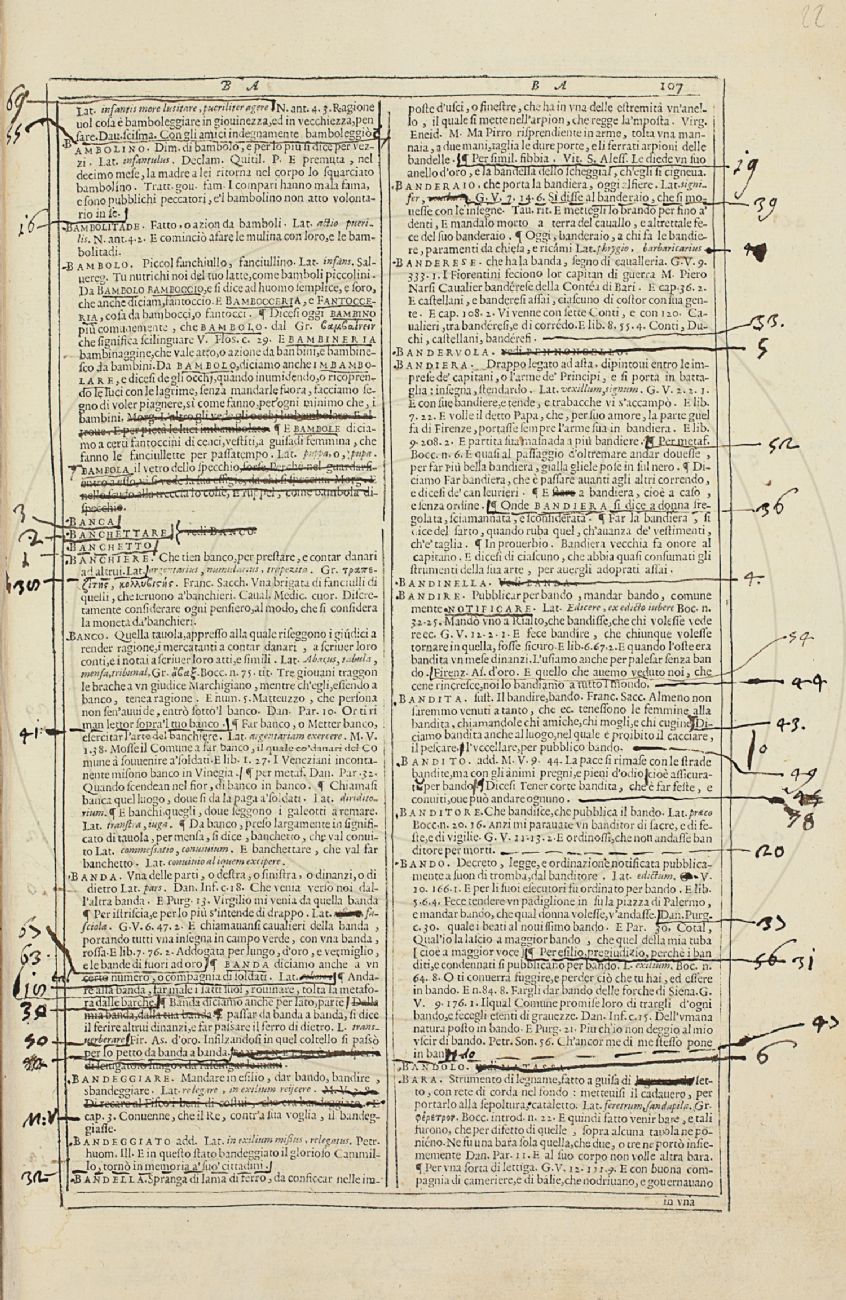 22
B A
B A
107
Lat. infantis more lusitare, pueriliter agere N. ant. 4. 3. Ragione
uol cosa è bamboleggiare in giouinezza, ed in vecchiezza, pen
sare. Dau. scisma. Con gli amici indegnamente bamboleggiò
BAMBOLINO. Dim. di bambolo, e per lo più si dice per vez-
zi. Lat. infantulus. Declam. Quitil. P. E premuta, nel
decimo mese, la madre a lei ritorna nel corpo lo squarciato
bambolino. Tratt. gou. fam. I compari hanno mala fama,
e sono pubblichi peccatori, e'l bambolino non atto volonta-
rio in se.
BAMBOLITADE. Fatto, o azion da bamboli. Lat. actio pueri-
lis. N. ant. 4. 2. E cominciò a fare le mulina con loro, e le bam-
bolitadi.
BAMBOLO. Piccol fanchiullo, fanciullino. Lat. infans. Sal-
uereg. Tu nutrichi noi del tuo latte, come bamboli piccolini.
Da BAMBOLO BAMBOCCIO, e si dice ad huomo semplice, e soro,
che anche diciam, fantoccio. E BAMBOCCERIA, e FANTOCCE-
RIA, cosa da bambocci, o fantocci. ¶ Dicesi oggi BAMBINO
più comunemente, che BAMBOLO. dal Gr. βαμβαλεῖν
che significa scilinguare V. Flos. c. 29. E BAMBINERIA
bambinaggine, che vale atto, o azione da bambini, e bambine-
sco da bambini. Da BAMBOLO, diciamo anche IMBAMBO-
LARE, e dicesi degli occhi, quando inumidendo, o ricopren-
do le luci con le lagrime, senza mandarle fuora, facciamo se-
gno di voler piagnere, si come fanno, per ogni minimo che, i
bambini.
¶ E BAMBOLE dicia-
mo a certi fantoccini di cenci, vestiti, a guisa di femmina, che
fanno le fanciullette per passatempo. Lat. puppa, o, pupa.
BAMBOLA il vetro dello specchio,
BANCA
BANCHETTARE vedi BANCO
BANCHETTO
BANCHIERE. Che tien banco, per prestare, e contar danari
ad altrui. Lat. argentarius, numularius, trapezita. Gr. τραπε-
ζίτης, κολλυβιστής. Franc. Sacch. Vna brigata di fanciulli di
quelli, che seruono a'banchieri. Caual. Medic. cuor. Discre-
tamente considerare ogni pensiero, al modo, che si considera
la moneta da'banchieri.
BANCO. Quella tauola, appresso alla quale riseggono i giudici a
render ragione, i mercatanti a contar danari, a scriuer loro
conti, e i notai a scriuer loro atti, e simili. Lat. Abacus, tabula,
mensa, tribunal, Gr. ἄβαξ. Bocc. n. 75. tit. Tre giouani traggon
le brache a vn giudice Marchigiano, mentre ch'egli, essendo a
banco, tenea ragione. E num. 5. Matteuzzo, che persona
non sen'auuide, entrò sotto'l banco. Dan. Par. 10. Or ti ri
man lettor sopra'l tuo banco. ¶ Far banco, o Metter banco,
esercitar l'arte del banchiere. Lat. argentariam exercere. M. V.
1. 38. Mosse il Comune a far banco, il quale co'danari del Co
mune à souuenire a'soldati. E lib. 1. 27. I Veneziani inconta-
nente misono banco in Vinegia. ¶ per metaf. Dan. Par. 32.
Quando scendean nel fior, di banco in banco. ¶ Chiamasi
banca quel luogo, doue si da la paga a'soldati. Lat. diribito-
rium. ¶ E banchi quegli, doue seggono i galeotti a remare.
Lat. transtra, iuga. ¶ Da banco, preso largamente in signifi-
cato di tauola, per mensa, si dice, banchetto, che val conui-
to Lat. commessatio, conuiuium. E banchettare, che val far
banchetto. Lat. conuiuio aliquem excipere.
BANDA. Vna delle parti, o destra, o sinistra, o dinanzi, o di
dietro Lat. pars. Dan. Inf. c. 18. Che venia verso noi dal-
l'altra banda. E Purg. 13. Virgilio mi venia da quella banda
¶ Per istriscia, e per lo più s'intende di drappo. Lat. fa-
sciola. G. V. 6. 47. 2. E chiamauansi caualieri della banda,
portando tutti vna insegna in campo verde, con vna banda,
rossa. E lib. 7. 76. 2. Addogata per lungo, d'oro, e vermiglio,
e le bande di fuori ad oro ¶ BANDA diciamo anche a vn
certo numero, o compagnia di soldati. Lat. ¶ Anda-
re alla banda, far male i fatti suoi, rouinare, tolta la metafo-
ra dalle barche. ¶ Banda diciamo anche per lato, parte Dalla
mia banda, dalla tua banda ¶ passar da banda a banda, si dice
il ferire altrui dinanzi, e far passare il ferro di dietro. L. trans-
uerberare. Fir. As. d'oro. Infilzandosi in quel coltello si passò
per lo petto da banda a banda.
BANDEGGIARE. Mandare in esilio, dar bando, bandire,
sbandeggiare. Lat. relegare, in exilium reijcere.
cap. 3. Conuenne, che il Re, contr'a sua voglia, il bandeg-
giasse.
BANDEGGIATO add. Lat. in exilium missus, relegatus. Petr.
huom. Ill. E in questo stato bandeggiato il glorioso Cammil-
lo, tornò in memoria a'suo'cittadini.
BANDELLA. Spranga di lama di ferro, da conficcar nelle im-
poste d'usci, o finestre, che ha in vna delle estremità vn'anel-
lo, il quale si mette nell'arpion, che regge la'mposta. Virg.
Eneid. M. Ma Pirro risprendiente in arme, tolta vna man-
naia, a due mani, taglia le dure porte, e li ferrati arpioni delle
bandelle. ¶ Per simil. fibbia. Vit. S. Aless. Le diede vn suo
anello d'oro, e la bandella dello scheggial, ch'egli si cigneua.
BANDERAIO. che porta la bandiera, oggi alfiere. Lat. signi-
fer, G. V. 7. 14. 6. Si disse al banderaio, che si mo-
uesse con le insegne. Tau. rit. E mettegli lo brando per fino a'
denti, E mandalo morto a terra del cauallo, e altrettale fe-
ce del suo banderaio. ¶ Oggi, banderaio, a chi fa le bandie-
re, paramenti da chiesa, e ricami Lat. phrygio, barbaricarius
BANDERESE. che ha la banda, segno di caualleria. G. V. 9.
333. 1. I Fiorentini feciono lor capitan di guerra M. Piero
Narsi Caualier banderese della Contéa di Bari. E cap. 36. 2.
E castellani, e banderesi assai, ciascuno di costor con sua gen-
te. E cap. 108. 2. Vi venne con sette Conti, e con 120. Ca-
ualieri, tra banderesi, e di corrédo. E lib. 8. 55. 4. Conti, Du-
chi, castellani, banderesi.
BANDERVOLA. vedi PENNONCELLO.
BANDIERA. Drappo legato ad asta. dipintoui entro le im-
prese de'capitani, o l'arme de'Principi, e si porta in batta-
glia: insegna, stendardo. Lat. vexillum, signum. G. V. 2. 2. 1.
E con sue bandiere, e tende, e trabacche vi s'accampò. E lib.
7. 22. E volle il detto Papa, che, per suo amore, la parte guel
fa di Firenze, portasse sempre l'arme sua in bandiera. E lib.
9. 208. 2. E partita sua masnada a più bandiere. ¶ Per metaf.
Bocc. n. 6. E quasi al passaggio d'oltremare andar douesse,
per far più bella bandiera, gialla gliele pose in sul nero. ¶ Di-
ciamo Far bandiera, che è passare auanti agli altri correndo,
e dicesi de'can leurieri. ¶ E a bandiera, cioè a caso,
e senza ordine. ¶ Onde BANDIERA si dice a donna sre-
golata, sciamannata, e sconsiderata. ¶ Far la bandiera, si
dice del sarto, quando ruba quel, ch'auanza de'vestimenti,
ch'e'taglia. ¶ In prouerbio. Bandiera vecchia fa onore al
capitano. E dicesi di ciascuno, che abbia quasi consumati gli
strumenti della sua arte, per auergli adoprati assai.
BANDINELLA. Vedi BANDA.
BANDIRE. Pubblicar per bando, mandar bando, comune
mente NOTIFICARE. Lat. Edicere, ex edicto iubere Boc. n.
32. 25. Mandò vno a Rialto, che bandisse, che chi volesse vede
re ec. G. V. 12. 2. 1. E fece bandire, che chiunque volesse
tornare in quella, fosse sicuro. E lib. 6. 67. 2. E quando l'oste era
bandita vn mese dinanzi. L'usiamo anche per palesar senza ban
do. Firenz. As. d'oro. E quello che auemo veduto noi, che
cene rincresce, noi lo bandiamo a tutto'l mondo.
BANDITA. sust. Il bandire, bando. Franc. Sacc. Almeno non
saremmo venuti a tanto, che ec. tenessono le femmine alla
bandita, chiamandole chi amiche, chi mogli, e chi cugine Di-
ciamo bandita anche al luogo, nel quale è proibito il cacciare,
il pescare. l'vccellare, per pubblico bando.
BANDITO. add. M. V. 9. 44. La pace si rimase con le strade
bandite, ma con gli animi pregni, e pieni d'odio cioè assicura-
te per bando ¶ Dicesi Tener corte bandita, che è far feste, e
conuiti, oue può andare ognuno.
BANDITORE. Che bandisce, che pubblica il bando. Lat. præco
Bocc. n. 20. 16. Anzi mi parauate vn banditor di sacre, e di fe-
ste, e di vigilie. G. V. 11. 13. 2. E ordinossi, che non andasse ban
ditore per morti.
BANDO. Decreto, legge, e ordinazione notificata pubblica-
mente a suon di tromba, dal banditore. Lat. edictum. G. V.
10. 166. 1. E per li suoi esecutori fu ordinato per bando. E lib.
5. 6. 4. Fece tendere vn padiglione in su la piazza di Palermo,
e mandar bando, che qual donna volesse, v'andasse. Dan. Purg.
c. 30. quale i beati al nouissimo bando. E Par. 30. Cotal,
Qual'io la lascio a maggior bando, che quel della mia tuba
cioè a maggior voce ¶ Per esilio, pregiudizio, perchè i ban
diti, e condennati si pubblicano per bando. L. exilium. Boc. n.
64. 8. O ti conuerrà fuggire, e perder ciò che tu hai, ed essere
in bando. E n. 84. 8. Fargli dar bando delle forche di Siena. G.
V. 9. 176. 1. Il qual Comune promise loro di trargli d'ogni
bando, e fecegli esenti di grauezze. Dan. Inf. c. 15. Dell'vmana
natura posto in bando. E Purg. 21. Più ch'io non deggio al mio
vscir di bando. Petr. Son. 56. Ch'ancor me di me stesso pone
in bando
BANDOLO. vedi MATASSA.
BARA. Strumento di legname, fatto a guisa di let-
to, con rete di corda nel fondo: metteuisi il cadauero, per
portarlo alla sepoltura, cataletto. Lat. feretrum, sandapila. Gr.
φέρετρον. Bocc. introd. n. 22. E quindi fatto venir bare, e tali
furono, che per difetto di quelle, sopra alcuna tauola ne po-
niéno. Ne fu una bara sola quella, che due, o tre ne portò insie-
memente Dan. Par. 11. E al suo corpo non volle altra bara.
¶ Per vna sorta di lettiga. G. V. 12. 111. 9. E con buona com-
pagnia di cameriere, e di balie, che nodriuano, e gouernauano
in vna
69
55
16
3
2
1
135
41
65
63
15
38
50
M:V
32
19
39
33.
5
52
36
4.
54
44
43.
10
49
48
20
33
56 31
43
6